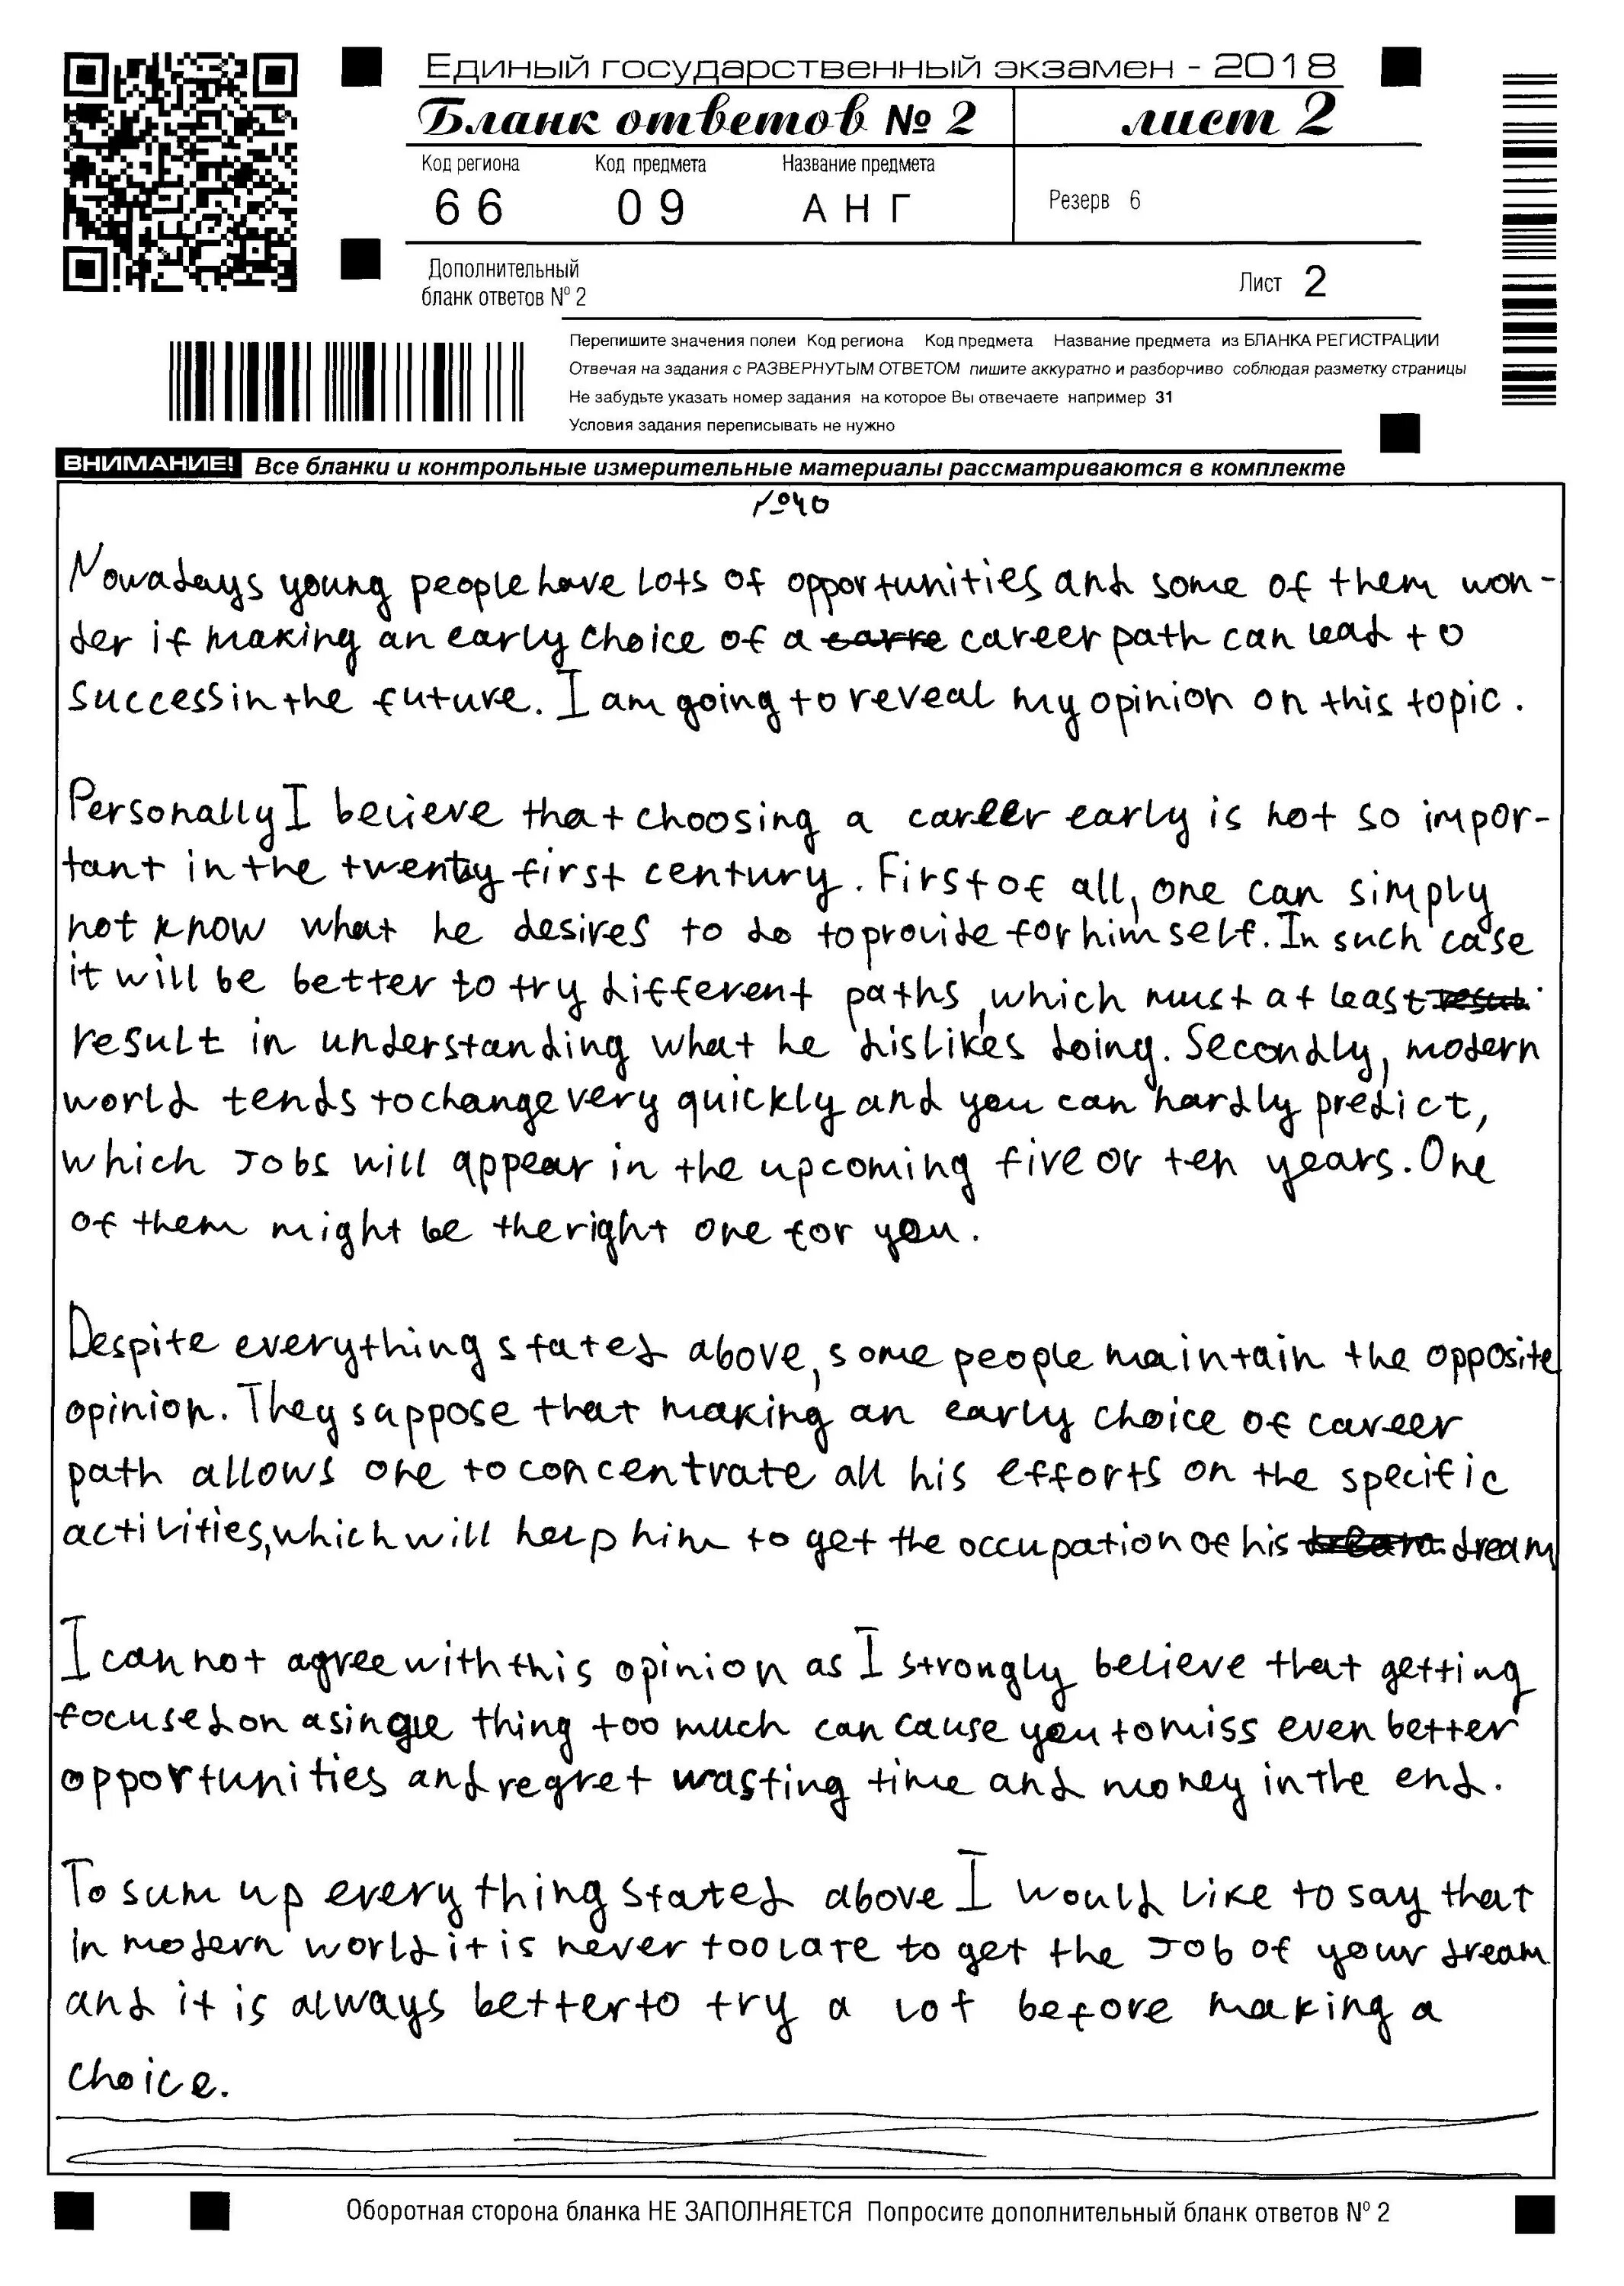 Единый государственный экзамен - 2018
Бланк ответов № 2 лист 2
Код региона Код предмета Название предмета
66 09 АНГ Резерв 6
Дополнительный
бланк ответов № 2 Лист 2
Перепишите значения полеи Код региона Код предмета Название предмета из БЛАНКА РЕГИСТРАЦИИ
Отвечая на задания с РАЗВЕРНУТЫМ ОТВЕТОМ пишите аккуратно и разборчиво соблюдая разметку страницы
Не забудьте указать номер задания на которое Вы отвечаете например 31
Условия задания переписывать не нужно
ВНИМАНИЕ! Все бланки и контрольные измерительные материалы рассматриваются в комплекте
№40
Nowadays young people have lots of opportunities and some of them won-
der if making an early choice of a carre career path can lead to
success in the future. I am going to reveal my opinion on this topic.
Personally I believe that choosing a career early is not so impor-
tant in the twenty first century. First of all, one can simply
not know what he desires to do to provide for himself. In such case
it will be better to try different paths, which must at least
result in understanding what he dislikes doing. Secondly, modern
world tends to change very quickly and you can hardly predict,
which jobs will appear in the upcoming five or ten years. One
of them might be the right one for you.
Despite everything stated above, some people maintain the opposite
opinion. They suppose that making an early choice of career
path allows one to concentrate all his efforts on the specific
activities, which will help him to get the occupation of his dream
I can not agree with this opinion as I strongly believe that getting
focused on a single thing too much can cause you to miss even better
opportunities and regret wasting time and money in the end.
To sum up everything stated above I would like to say that
in modern world it is never too late to get the job of your dream
and it is always better to try a lot before making a
choice.
Оборотная сторона бланка НЕ ЗАПОЛНЯЕТСЯ Попросите дополнительный бланк ответов № 2